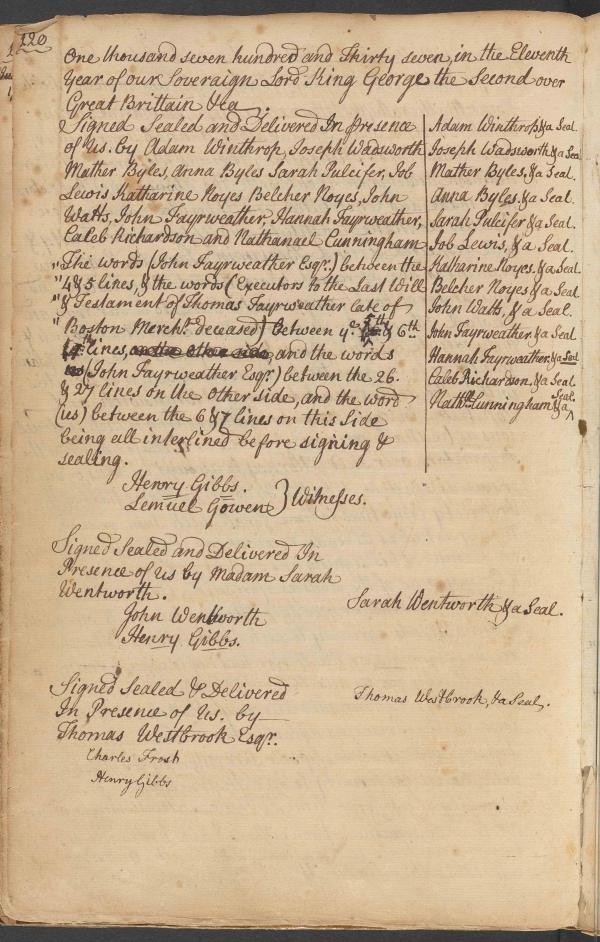 120
One thousand seven hundred and Thirty seven, in the Eleventh
Year of our Soveraign Lord King George the Second over
Great Brittain &ca.
Signed Sealed and Delivered In presence
of us. by Adam Winthrop, Joseph Wadsworth
Mather Byles, Anna Byles Sarah Pulcifer, Job
Lewis Katharine Noyes Belcher Noyes, John
Watts, John Fayrweather, Hannah Fayrweather,
Caleb Richardson and Nathanael Cunningham
"The words (John Fayrweather Esqr.) between the
"4 & 5 lines, & the words (Executors to the Last Will
"& Testament of Thomas Fayrweather late of
"Boston Mercht. deceased) between ye 5th & 6th
lines, on the other side, and the words
(John Fayrweather Esqr.) between the 26.
& 27 lines on the other side, and the word
(us) between the 6 & 7 lines on this side
being all interlined before signing &
sealing.
Adam Winthrop, &a Seal.
Joseph Wadsworth &a Seal
Mather Byles, &a Seal.
Anna Byles, &a Seal.
Sarah Pulcifer &a Seal.
Job Lewis, &a Seal.
Katharine Noyes, &a Seal.
Belcher Noyes, &a Seal
John Watts, &a Seal.
John Fayrweather, &a Seal
Hannah Fayrweather, &a Seal
Caleb Richardson, &a Seal.
Nathll. Cunningham &a Seal.
Henry Gibbs.
Lemuel Gowen } Witnesses.
Signed Sealed and Delivered In
Presence of us by Madam Sarah
Wentworth.
Sarah Wentworth &a Seal.
John Wentworth
Henry Gibbs.
Signed Sealed & Delivered
In Presence of Us. by
Thomas Westbrook Esqr.
Thomas Westbrook, &a Seal.
Charles Frost
Henry Gibbs